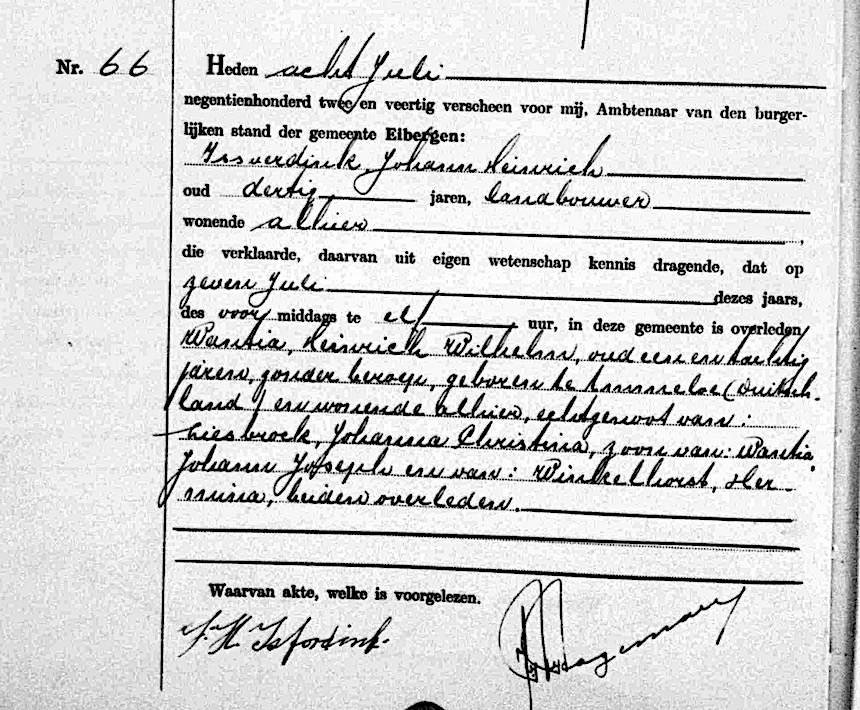 Nr. 66
Heden acht Juli
negentienhonderd twee en veertig verscheen voor mij, Ambtenaar van den burger-
lijken stand der gemeente Eibergen:
Issverdink, Johann Heinrich
oud dertig jaren, landbouwer
wonende alhier ,
die verklaarde, daarvan uit eigen wetenschap kennis dragende, dat op
zeven Juli dezes jaars,
des voor middags te elf uur, in deze gemeente is overleden
Wantia, Heinrich Wilhelm, oud een en tachtig
jaren, zonder beroep, geboren te Ammeloe (Duitsch-
land) en wonende alhier, echtgenoot van:
Liesbrock, Johanna Christina, zoon van: Wantia
Johann Joseph en van: Winkelhorst, Her-
mina, beiden overleden.
Waarvan akte, welke is voorgelezen.
J. H. Isfordink.